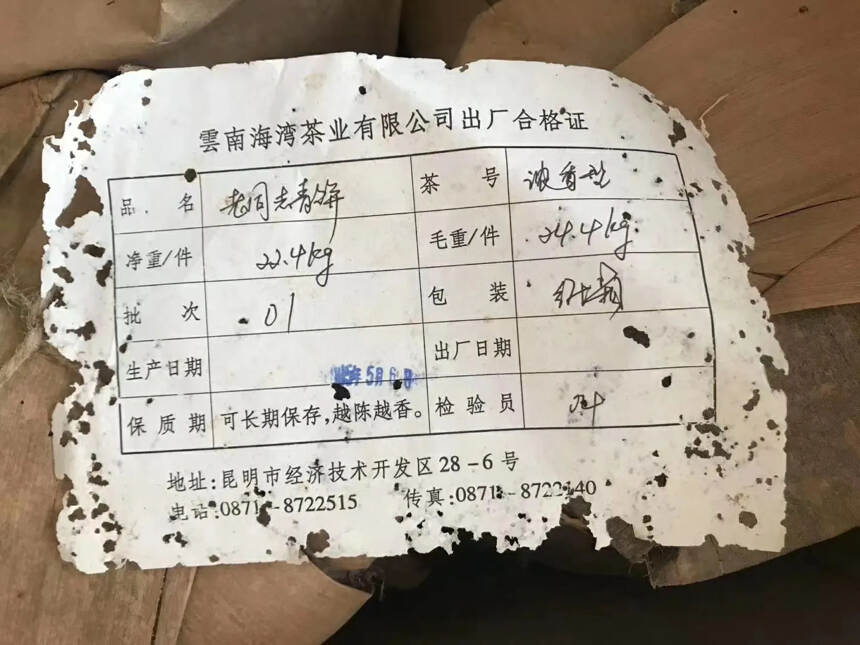 雲南海湾茶业有限公司出厂合格证
品名 老同志青饼 茶号 浓香型
净重/件 22.4kg 毛重/件 24.4kg
批次 01 包装
生产日期 5月6 出厂日期
保质期 可长期保存,越陈越香。 检验员
地址:昆明市经济技术开发区28-6号
电话:0871-8722515 传真:0871-8722140